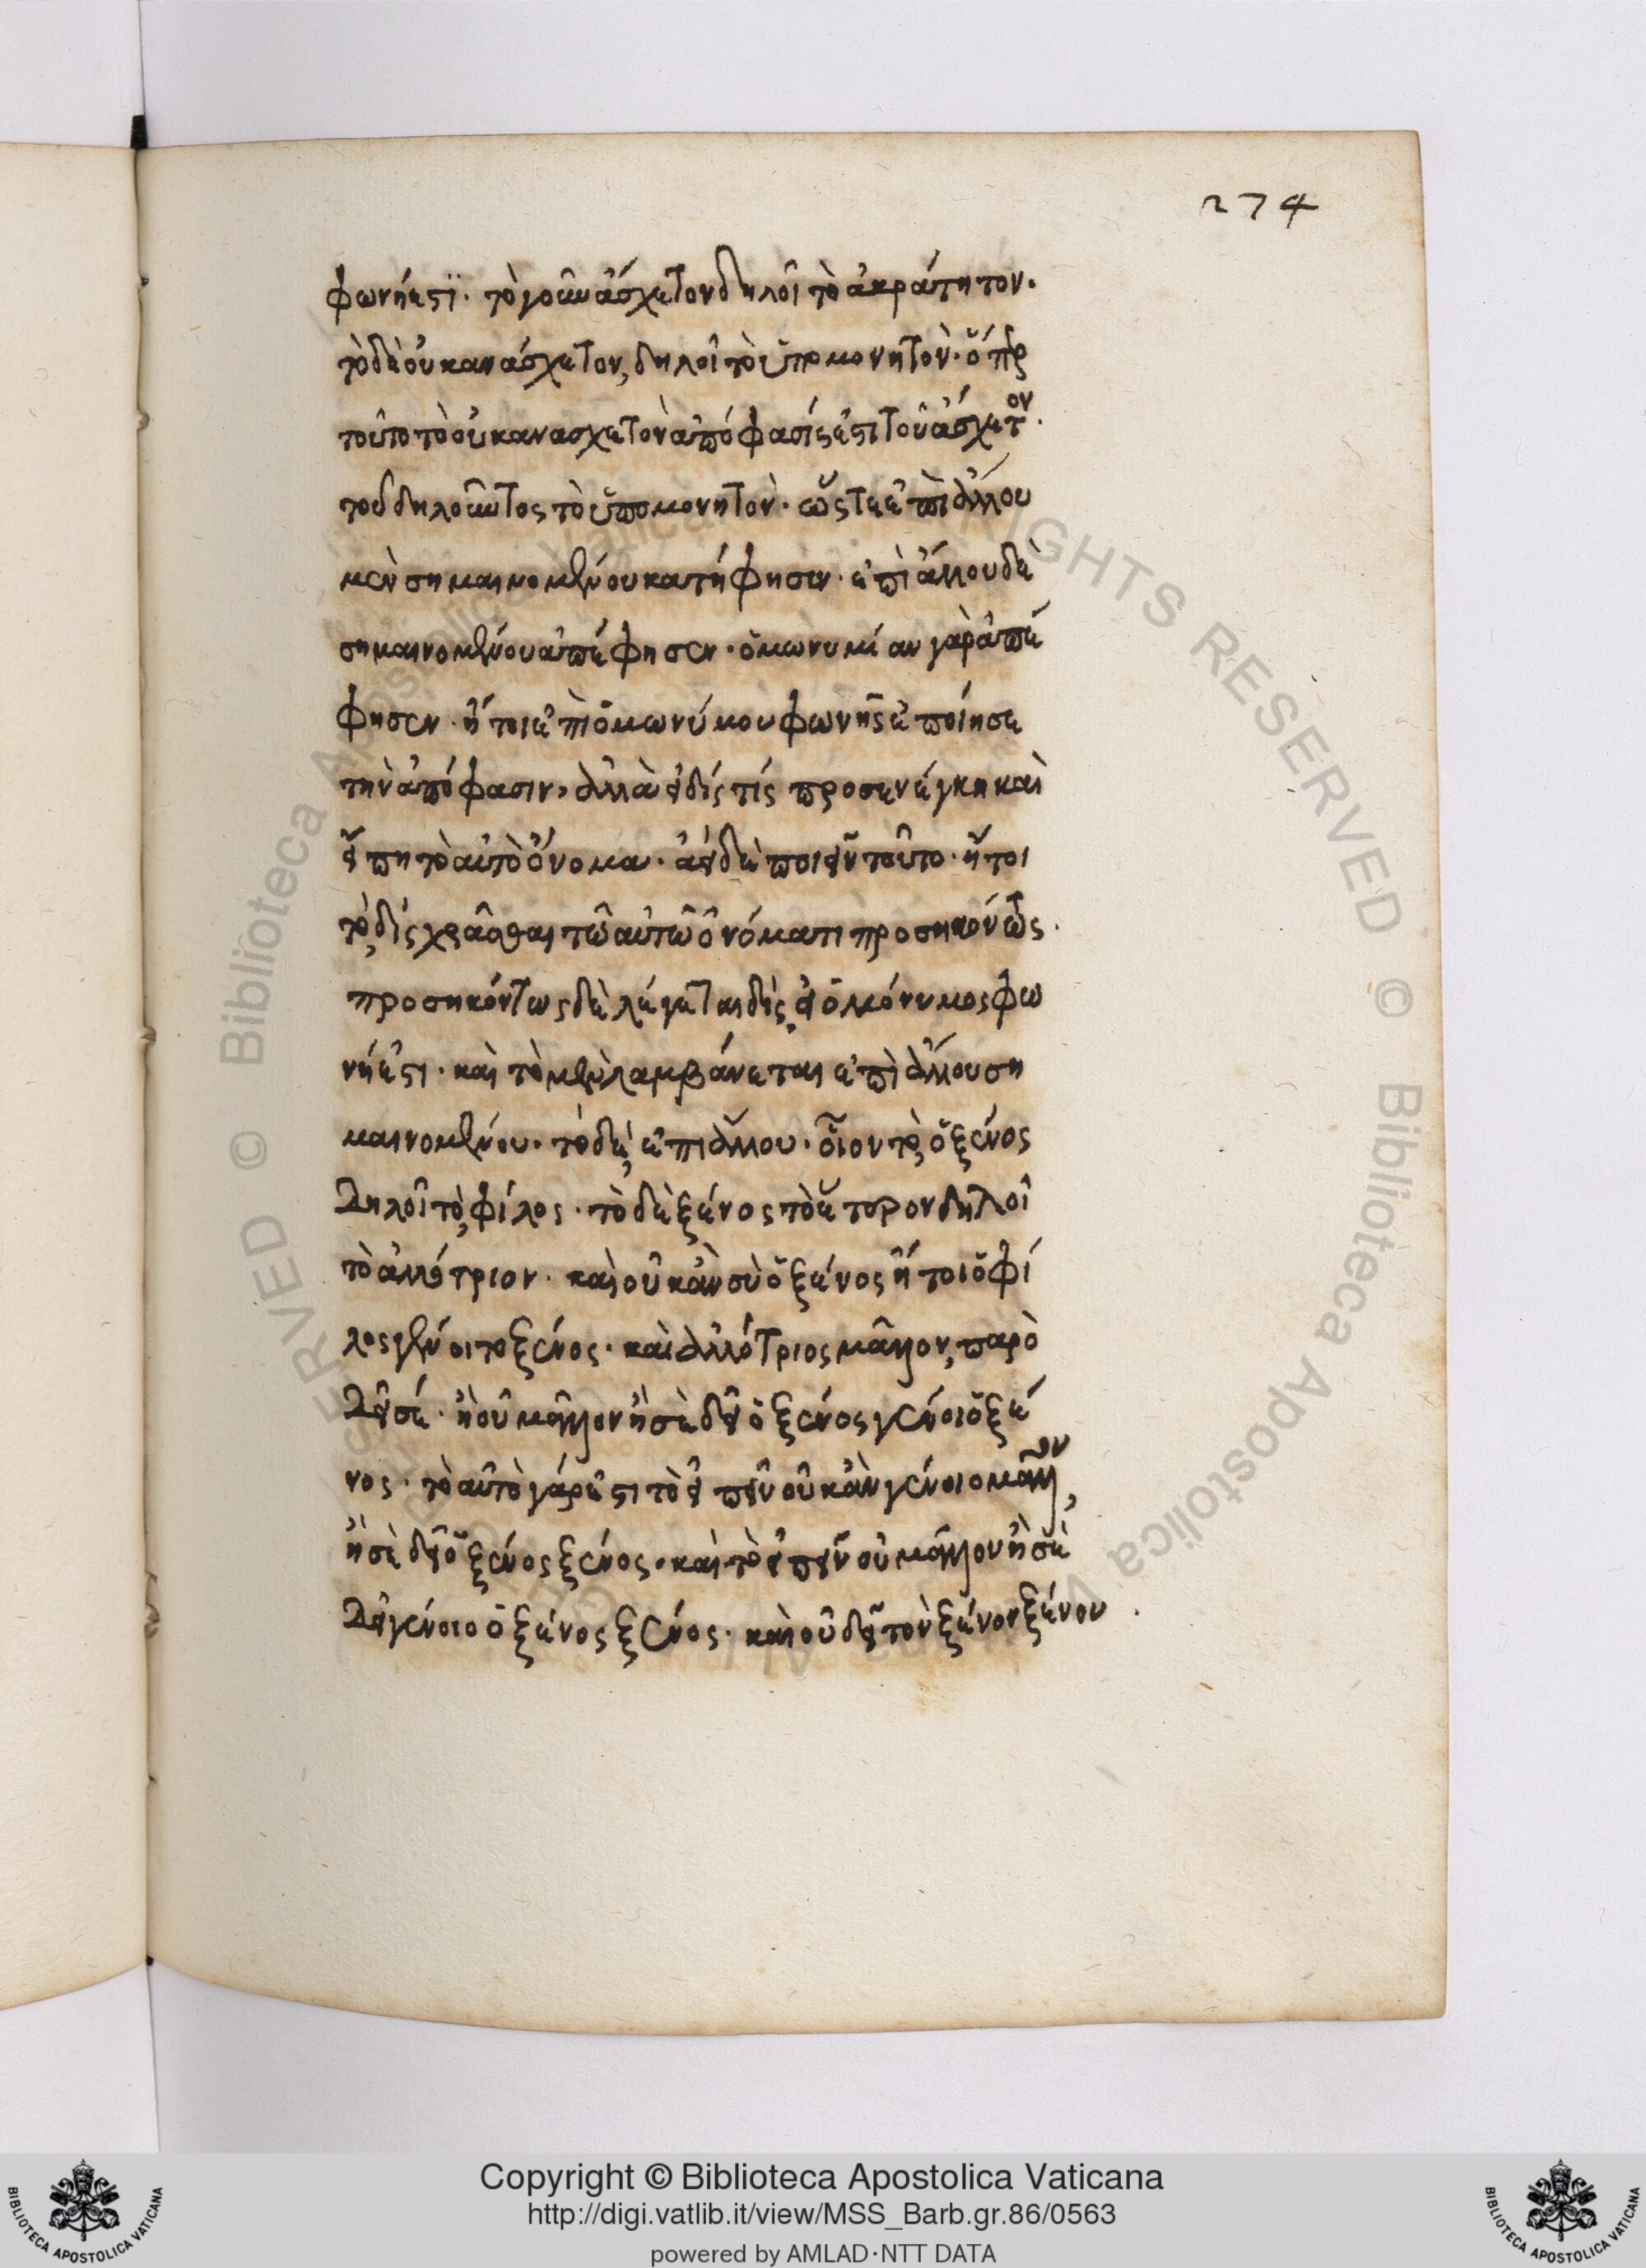 274
φωνή ἐστϊ. τὸ γοῦν ἀσχετον δηλοῖ τὸ ἀκράτητον.
τὸ δὲ οὐκ ἀνάσχετον, δηλοῖ τὸ ὑπομονητὸν. ὅπερ
τοῦτο τὸ οὐκ ἀνασχετὸν ἀπόφασίς ἐστι τοῦ ἀσχετον.
τοῦ δηλοῦντος τὸ ὑπομονητὸν. ὥστε ἐπὶ ἄλλου
μὲν σημαινομένου κατήφησεν. ἐπὶ ἄλλου δὲ
σημαινομένου ἀπέφησεν. ὁμωνυμίαν γὰρ ἀπέ
φησεν. ἤτοι ἐπὶ ὁμωνύμου φωνῆς ἐποίησε
τὴν ἀπόφασιν, ἀλλὰ εἰ δίς τίς προσενέγκη καὶ
εἴπη τὸ αὐτὸ ὄνομα. ἀεὶ δὲ ποιεῖν τοῦτο. ἤτοι
τὸ δὶς χρᾶσθαι τῶ αὐτῶ ὀνόματι προσηκόντως.
προσηκόντως δὲ λέγεται δὶς, εἰ ὁμόνυμος φω
νή ἐστι. καὶ τὸ μὲν λαμβάνεται ἐπὶ ἄλλου ση
μαινομένου. τὸ δὲ, ἐπὶ ἄλλου. οἷον τὸ, ὁ ξένος
δηλοῖ τὸ, φίλος. τὸ δὲ ξένος τὸ ἕτερον δηλοῖ
τὸ ἀλλότριον. καὶ οὐκ ἂν σὺ ὁ ξένος ἤτοι ὁ φί
λος γένοιτο ξένος. καὶ ἀλλότριος μᾶλλον, παρὸ
δεῖ σέ. ἢ οὐ μᾶλλον ἢ σὲ δεῖ ὁ ξένος γένοιο ξέ
νος. τὸ αὐτὸ γάρ ἐστι τὸ εἰπεῖν οὐκ ἂν γένοιο μᾶλλον,
ἢ σὲ δεῖ ὁ ξένος ξένος. καὶ τὸ εἰπεῖν οὐ μᾶλλον ἢ σὲ
δεῖ γένοιο ὁ ξένος ξένος. καὶ οὐ δεῖ τὸν ξένον ξένου.
Copyright © Biblioteca Apostolica Vaticana
http://digi.vatlib.it/view/MSS_Barb.gr.86/0563
powered by AMLAD·NTT DATA
BIBLIOTECA APOSTOLICA VATICANA
BIBLIOTECA APOSTOLICA VATICANA